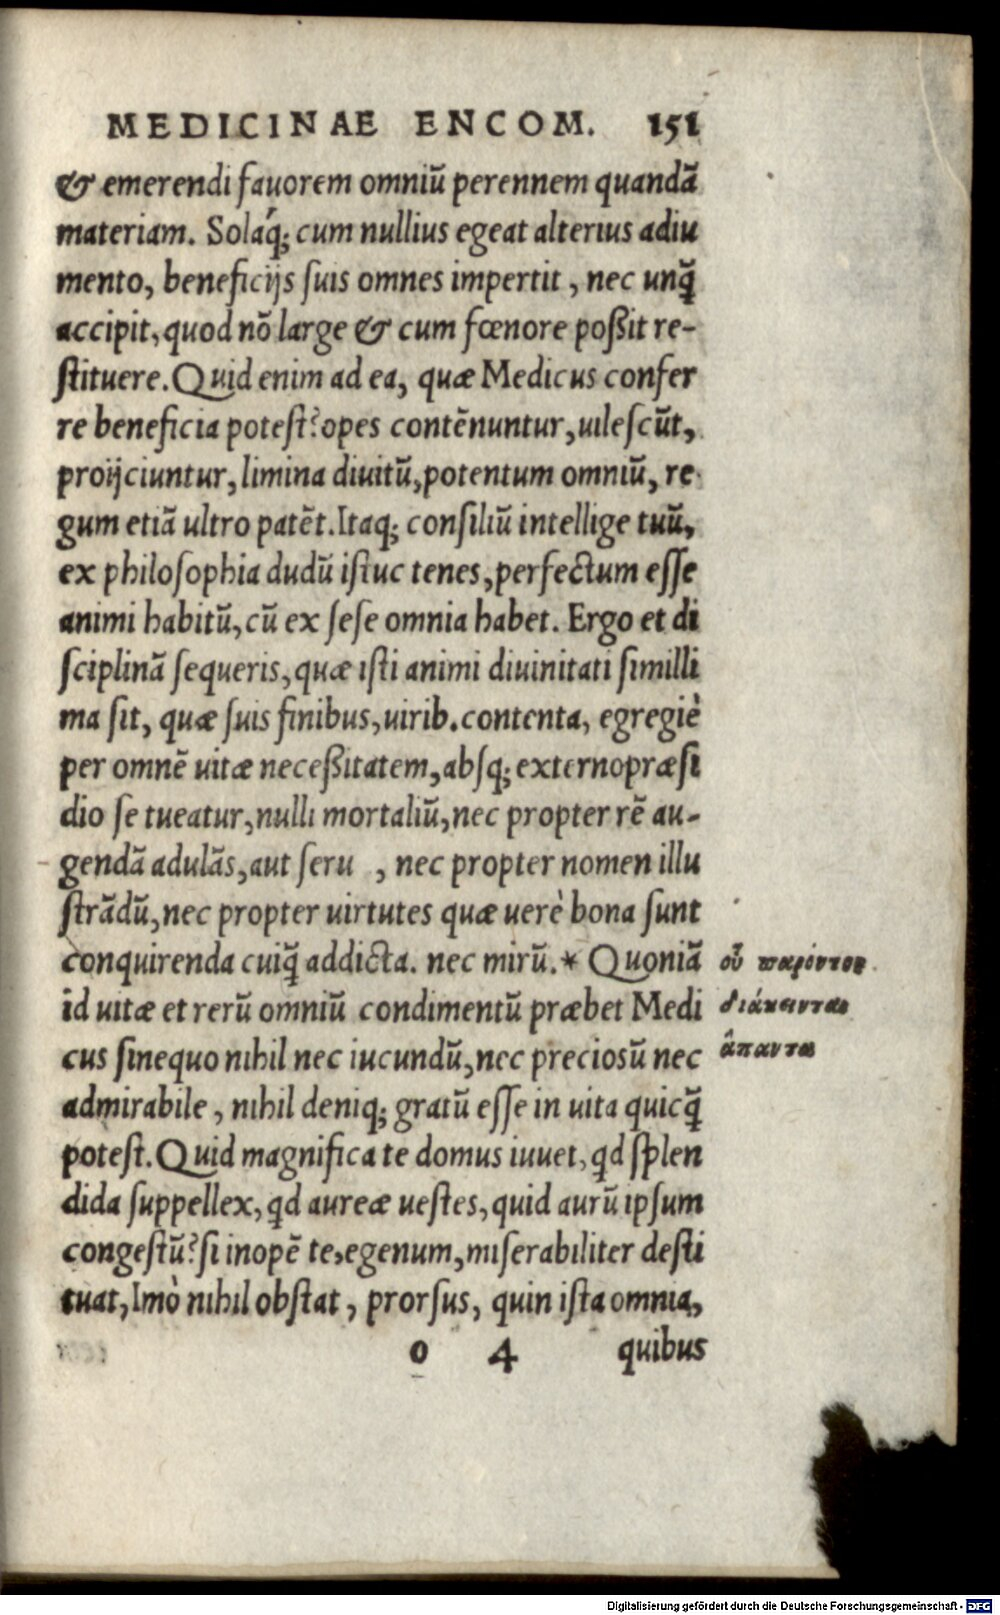 MEDICINAE ENCOM. 151
& emerendi fauorem omniũ perennem quandã
materiam. Solaq́; cum nullius egeat alterius adiu
mento, beneficijs suis omnes impertit, nec unq̃
accipit, quod nõ large & cum fœnore poßit re-
stituere. Quid enim ad ea, quæ Medicus confer
re beneficia potest? opes contẽnuntur, uilescũt,
proijciuntur, limina diuitũ, potentum omniũ, re-
gum etiã ultro patẽt. Itaq; consiliũ intellige tuũ,
ex philosophia dudũ istuc tenes, perfectum esse
animi habitũ, cũ ex sese omnia habet. Ergo et di
sciplinã sequeris, quæ isti animi diuinitati simili
ma sit, quæ suis finibus, uirib. contenta, egregiè
per omnẽ uitæ neceßitatem, absq; externo præsi
dio se tueatur, nulli mortaliũ, nec propter rẽ au-
gendã adulãs, aut seru , nec propter nomen illu
strãdũ, nec propter uirtutes quæ uerè bona sunt
conquirenda cuiq̃ addicta. nec mirũ. * Quoniã
id uitæ et rerũ omniũ condimentũ præbet Medi
cus sinequo nihil nec iucundũ, nec preciosũ nec
admirabile, nihil deniq; gratũ esse in uita quicq̃
potest. Quid magnifica te domus iuuet, qd splen
dida suppellex, qd aureæ uestes, quid aurũ ipsum
congestũ? si inopẽ te, egenum, miserabiliter desti
tuat, Imò nihil obstat, prorsus, quin ista omnia,
o 4 quibus
οὗ παρόντος
διάκεινται
ἅπαντα
Digitalisierung gefördert durch die Deutsche Forschungsgemeinschaft - DFG